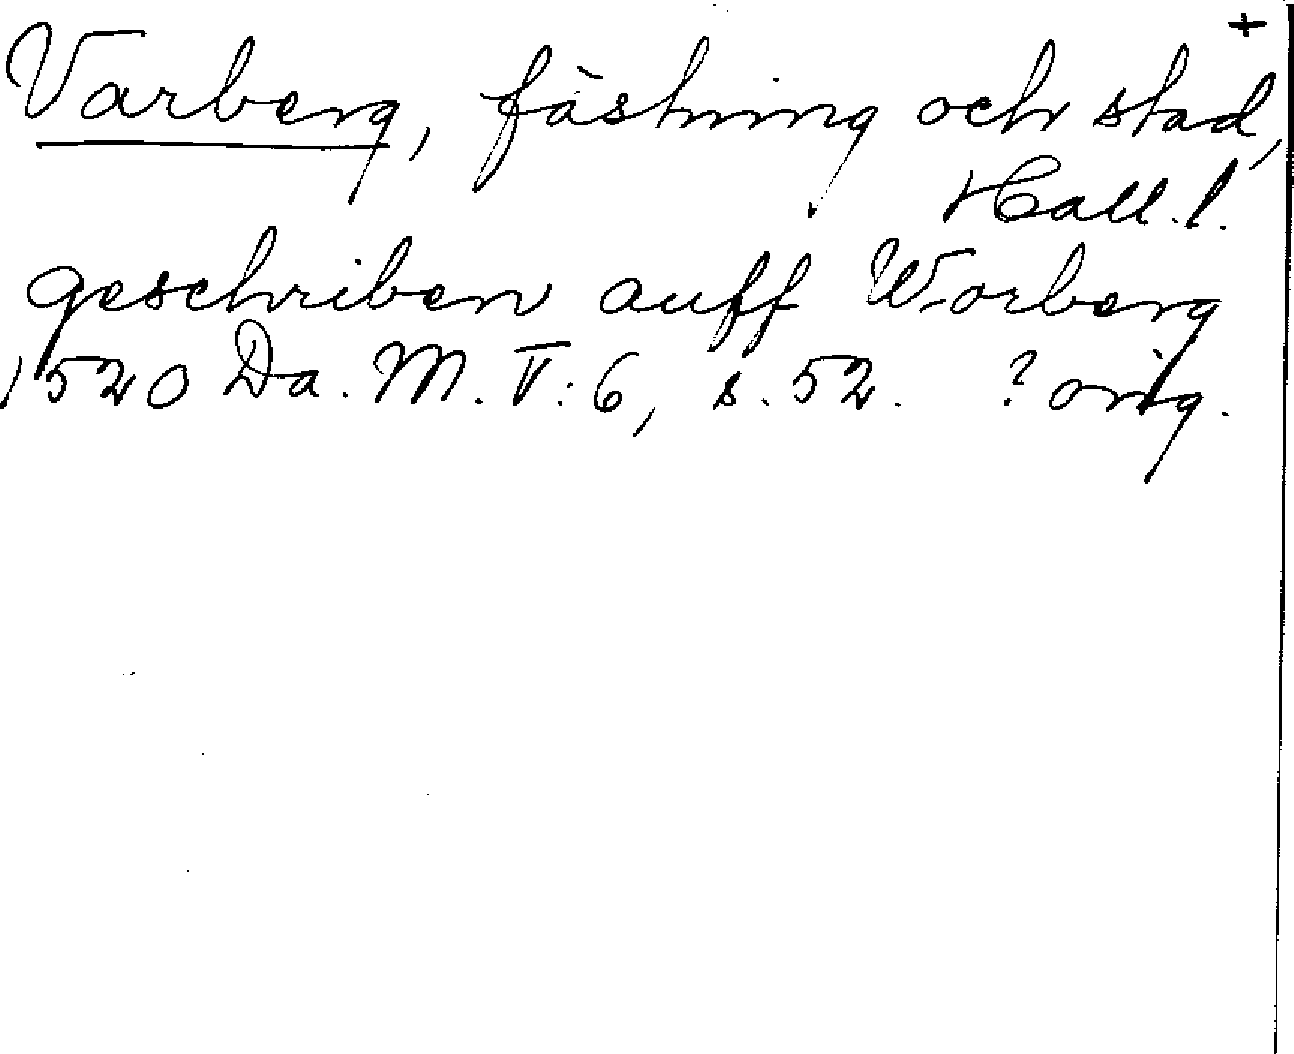 +
Varberg, fästning och stad,
Hall. l.
geschriben auff Worberg
1520 Da. M. V: 6, s. 52. ? orig.